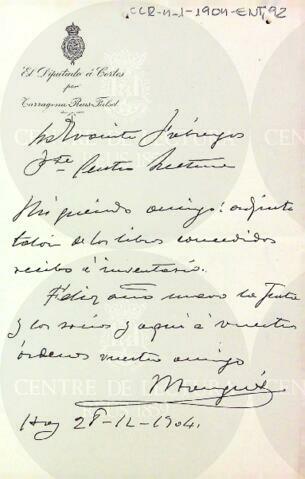 CCR-4-1-1904-ENT, 92
El Diputado á Cortes
por
Tarragona-Reus-Falset
Pte Centro Lectura
Mi querido amigo: adjunto
talón de los libros concedidos
recibo é inventario.
Feliz año nuevo la Junta
y los socios y aquí á vuestras
órdenes vuestro amigo
Hoy 28-12-1904.
CENTRE DE LECTURA